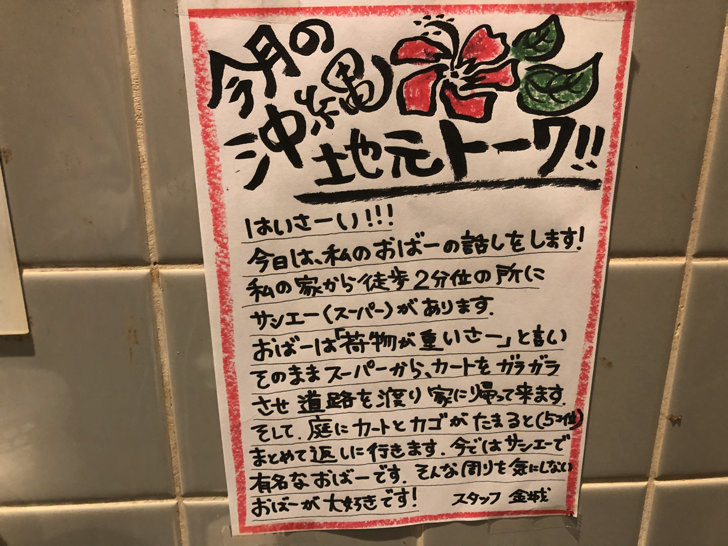 今月の
沖縄
地元トーク!!
はいさーい!!!
今日は、私のおばーの話しをします!
私の家から徒歩2分位の所に
サンエー(スーパー)があります.
おばーは「荷物が重いさー」と言い
そのままスーパーから、カートをガラガラ
させ道路を渡り家に帰って来ます.
そして、庭にカートとカゴがたまると(5コ位)
まとめて返しに行きます. 今ではサンエーで
有名なおばーです. そんな周りを気にしない
おばーが大好きです! スタッフ 金城